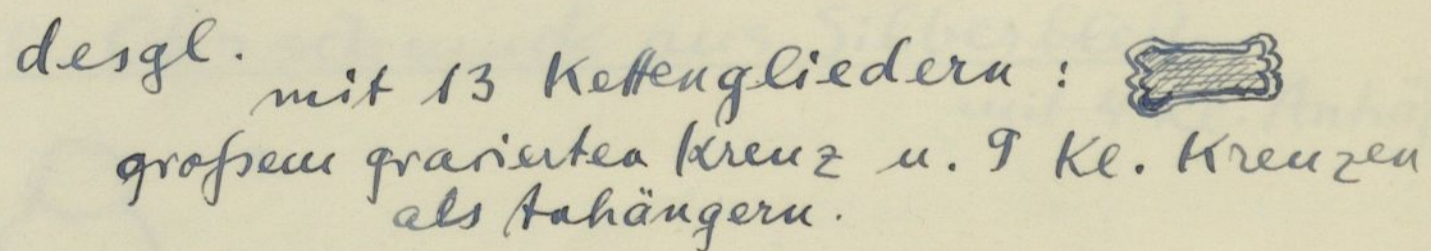 desgl.
mit 13 Kettengliedern :
großem gravierten Kreuz u. 9 Kl. Kreuzen
als Anhängern.